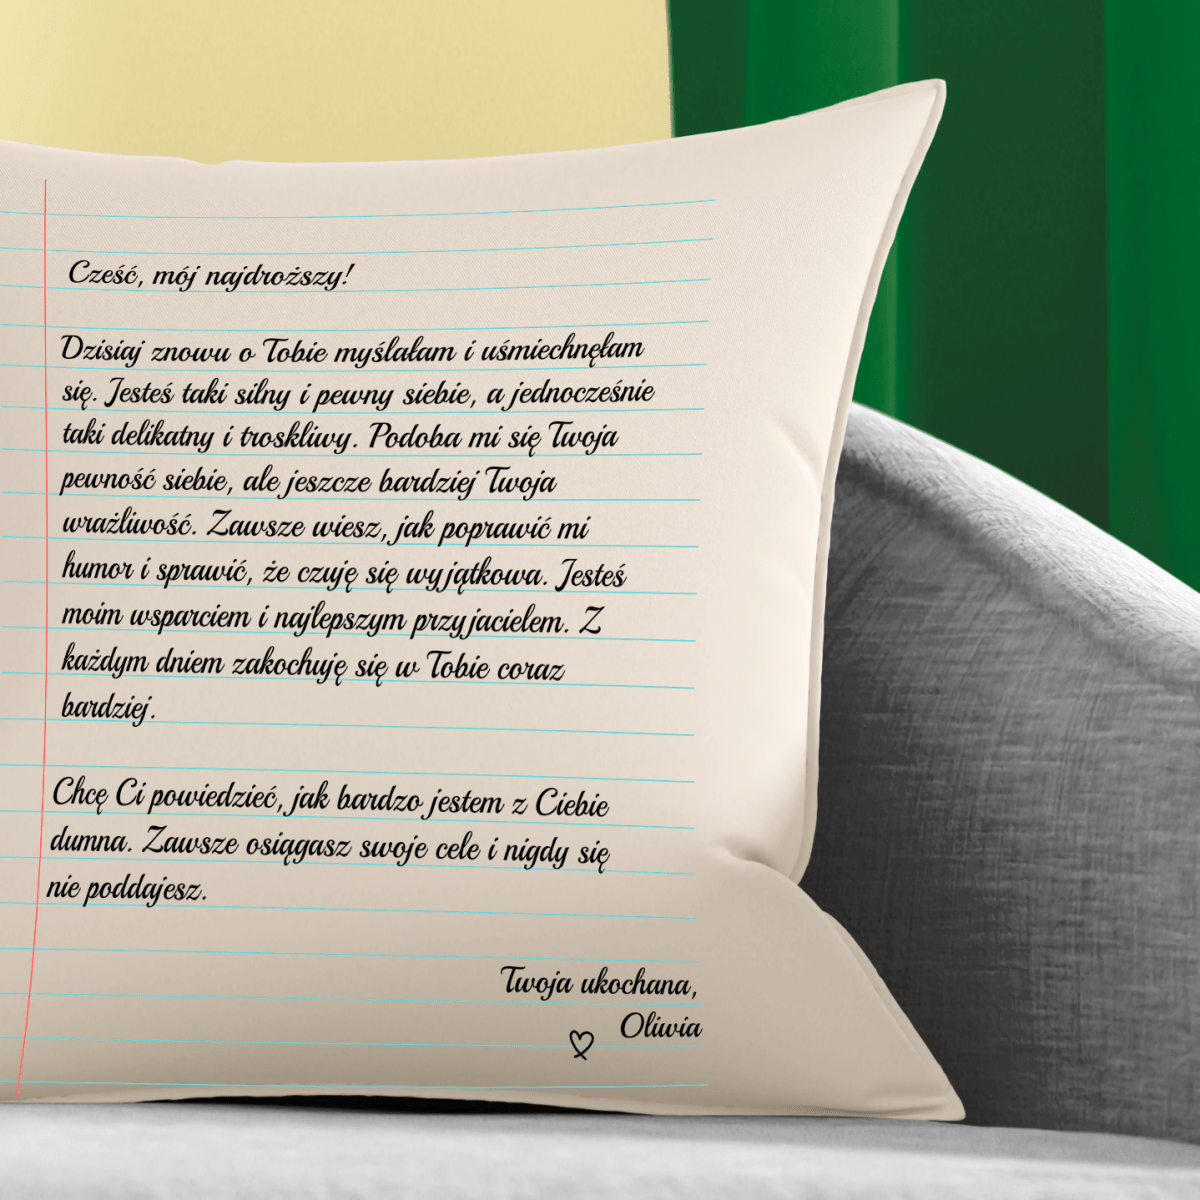 Cześć, mój najdroższy!
Dzisiaj znowu o Tobie myślałam i uśmiechnęłam
się. Jesteś taki silny i pewny siebie, a jednocześnie
taki delikatny i troskliwy. Podoba mi się Twoja
pewność siebie, ale jeszcze bardziej Twoja
wrażliwość. Zawsze wiesz, jak poprawić mi
humor i sprawić, że czuję się wyjątkowa. Jesteś
moim wsparciem i najlepszym przyjacielem. Z
każdym dniem zakochuję się w Tobie coraz
bardziej.
Chcę Ci powiedzieć, jak bardzo jestem z Ciebie
dumna. Zawsze osiągasz swoje cele i nigdy się
nie poddajesz.
Twoja ukochana,
Oliwia